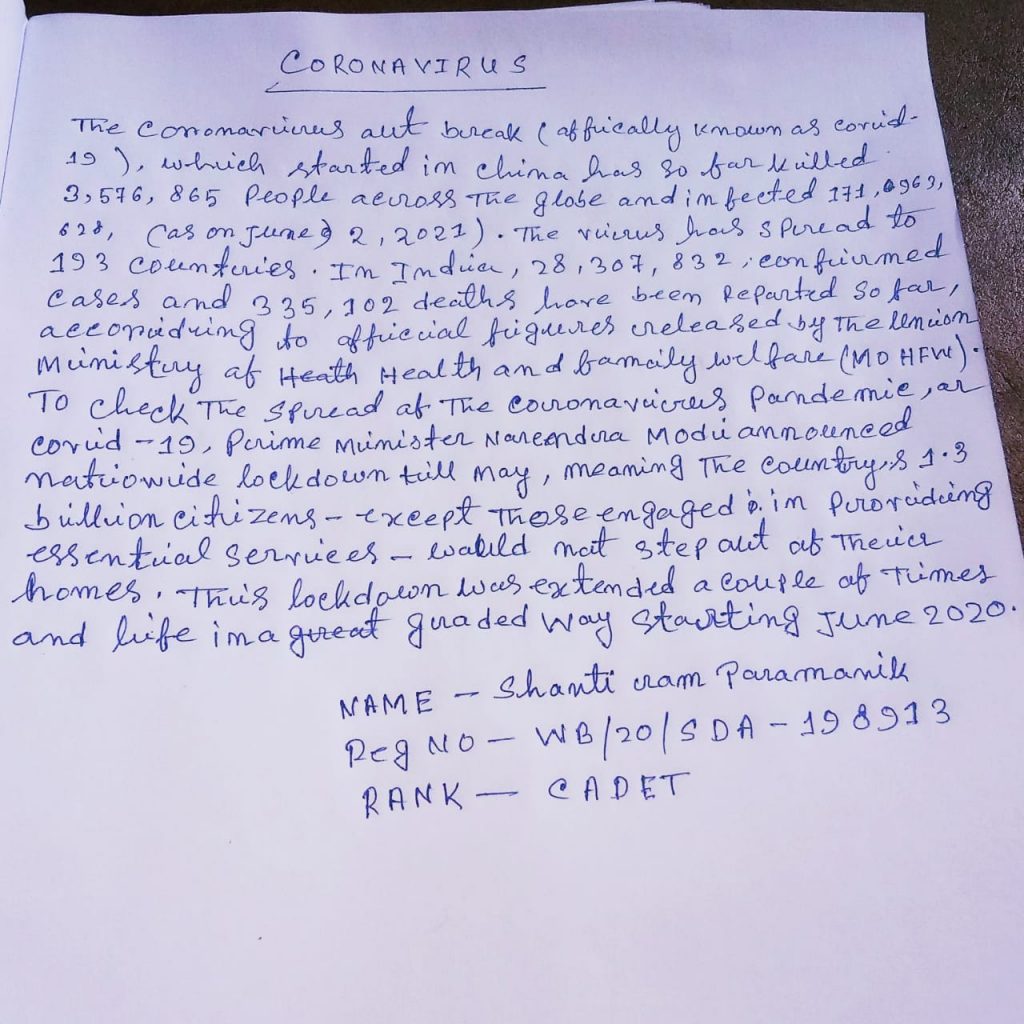 CORONAVIRUS
The Coronavirus out break (offically known as covid-
19), which started in china has so far killed
3,576,865 People across The globe and infected 171,0963,
628, (as on June 2, 2021). The virus has spread to
193 countries. In India, 28,307,832, confirmed
cases and 335,102 deaths have been Reported so far,
according to official figures released by The Union
Ministry of Heath Health and family welfare (MOHFW).
To check The spread of The coronavirus Pandemic, or
covid-19, Prime Minister Narendra Modi announced
nationwide lockdown till May, meaning The country,s 1.3
billion citizens - except Those engaged in Providing
essential services - would not step out of Their
homes. This lockdown was extended a couple of Times
and life in a great graded way starting June 2020.
NAME - Shanti ram Paramanik
Reg NO - WB/20/SDA-198913
RANK - CADET